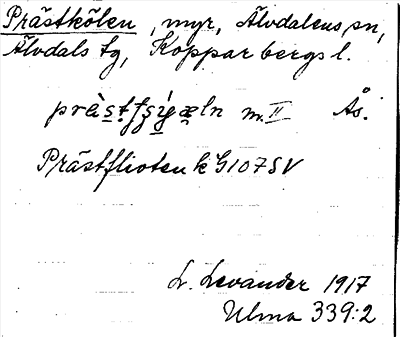 Prästkölen, myr, Älvdalens sn,
Älvdals tg, Kopparbergs l.
m. II Ås.
Prästflioten k G107SV
L. Levander 1917
Ulma 339:2